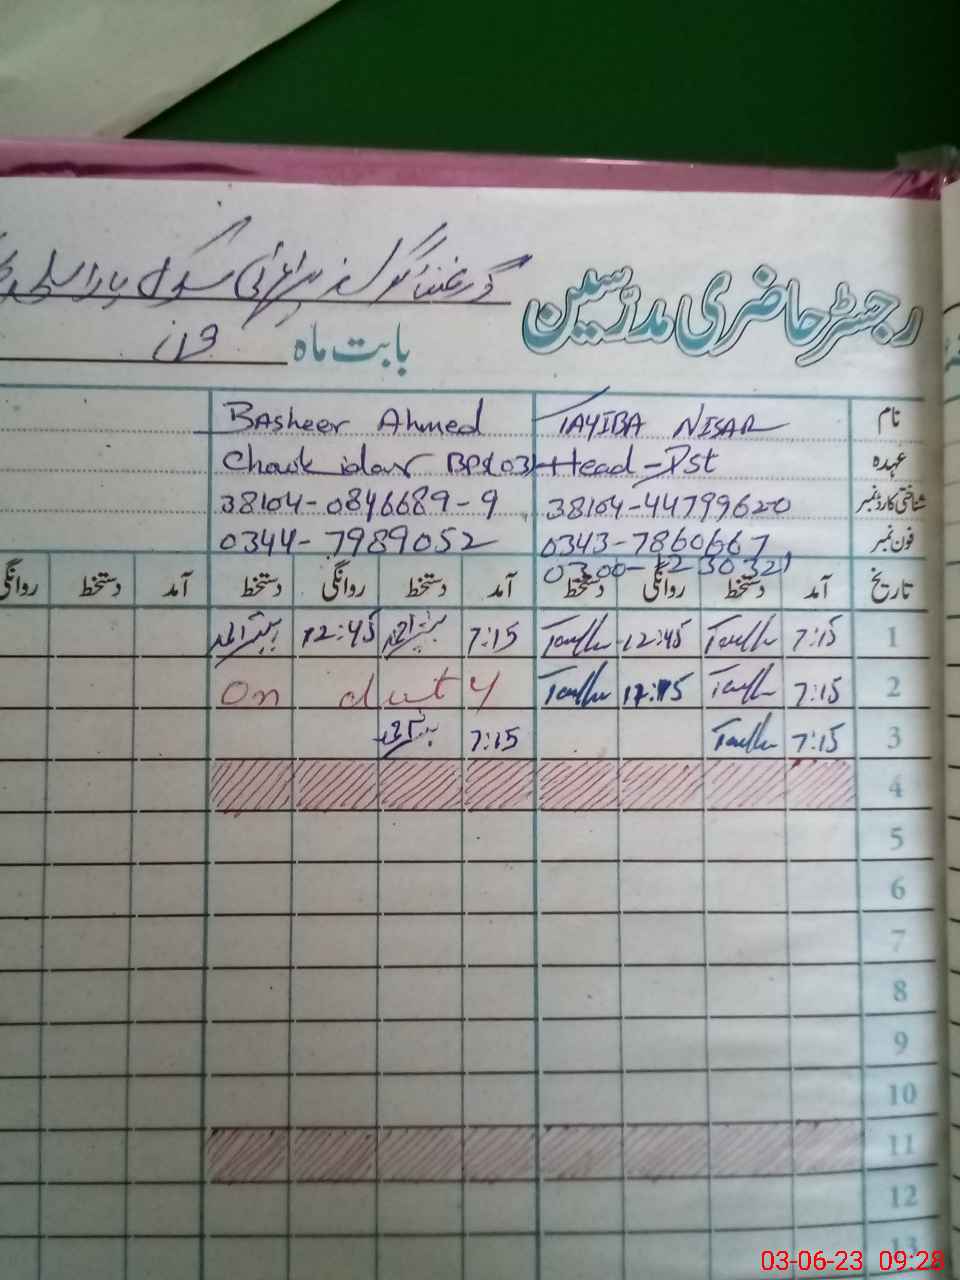 رجسٹر حاضری مدرّسین گورنمنٹ گرلز پرائمری سکول
بابت ماہ جون
نام TAYIBA NISAR Basheer Ahmed
عہدہ Head-Pst Chowkidar
شناختی کارڈ نمبر 38104-44799620 38104-0846689-9
فون نمبر 0343-7860667 0344-7989052
0300-1230321
تاریخ آمد دستخط روانگی دستخط آمد دستخط روانگی دستخط آمد دستخط روانگی
1 7:15 12:45 7:15 12:45
2 7:15 On duty
3 7:15 7:15
4
5
6
7
8
9
10
11
12
13
03-06-23 09:28